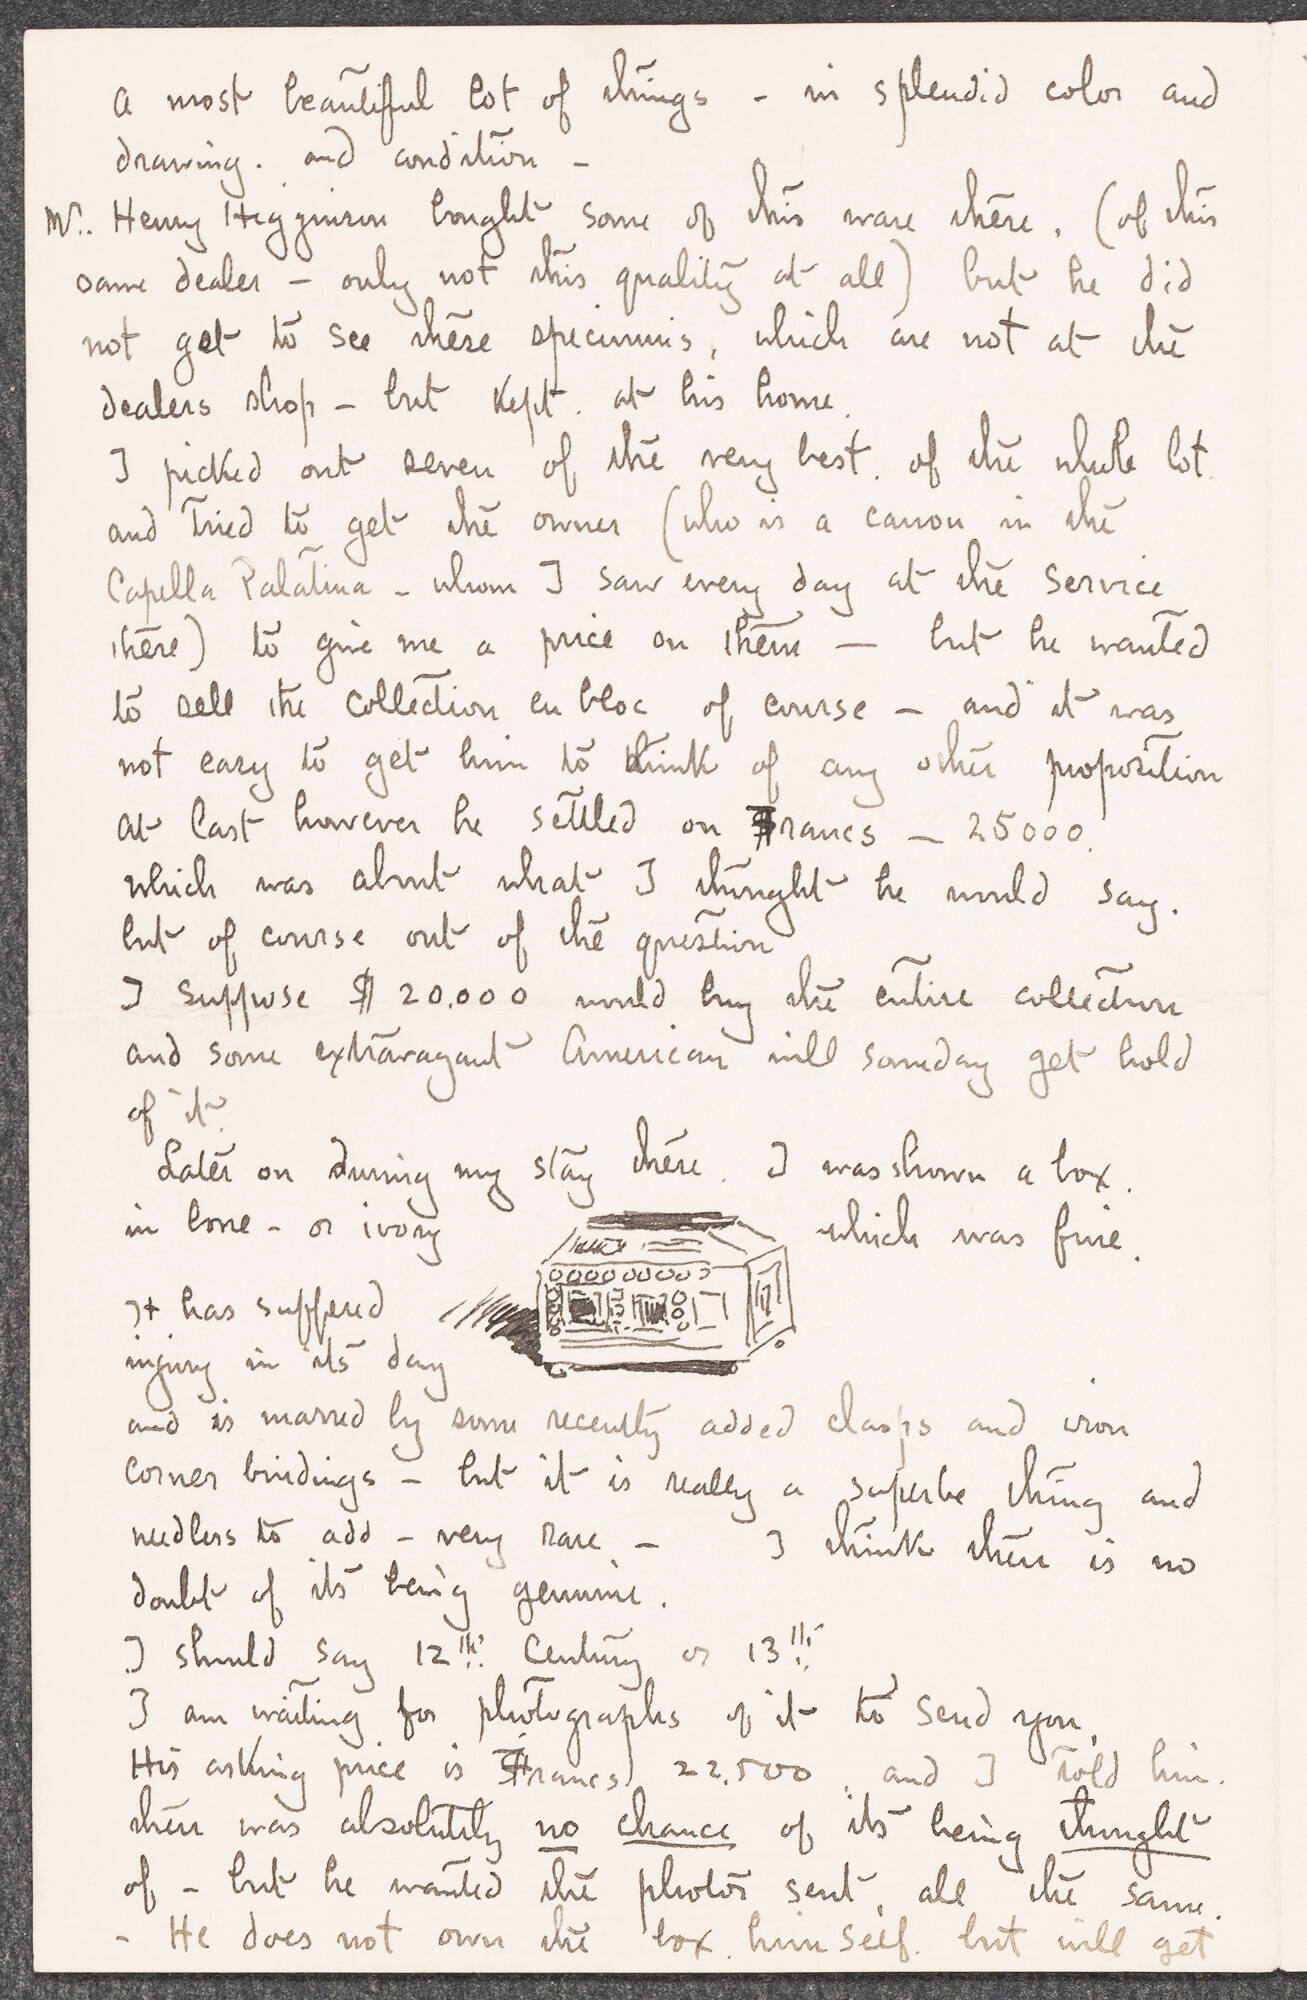 a most beautiful lot of things - in splendid color and
drawing. and condition -
Mr. Henry Higginson bought some of this ware there, (of this
same dealer - only not this quality at all) but he did
not get to see these specimins, which are not at the
dealers shop - but kept. at his home.
I picked out seven of the very best. of the whole lot.
and tried to get the owner (who is a canon in the
Capella Palatina - whom I saw every day at the service
there) to give me a price on them — but he wanted
to sell the collection en bloc of course - and it was
not easy to get him to think of any other proposition
at last however he settled on Francs - 25000.
which was about what I thought he would say.
but of course out of the question
I suppose $ 20.000 would buy the entire collection
and some extravagant American will someday get hold
of it.
Later on during my stay there. I was shown a box.
in bone - or ivory which was fine.
It has suffered
injury in its day
and is marred by some recently added clasps and iron
corner bindings - but it is really a superbe thing and
needless to add - very rare - I think there is no
doubt of its being genuine.
I should say 12!!! Century or 13!!!
I am waiting for photographs of it to send you.
His asking price is Francs 22.500, and I told him.
there was absolutely no chance of its being thought
of - but he wanted the photos sent, all the same.
- He does not own the box. him self. but will get